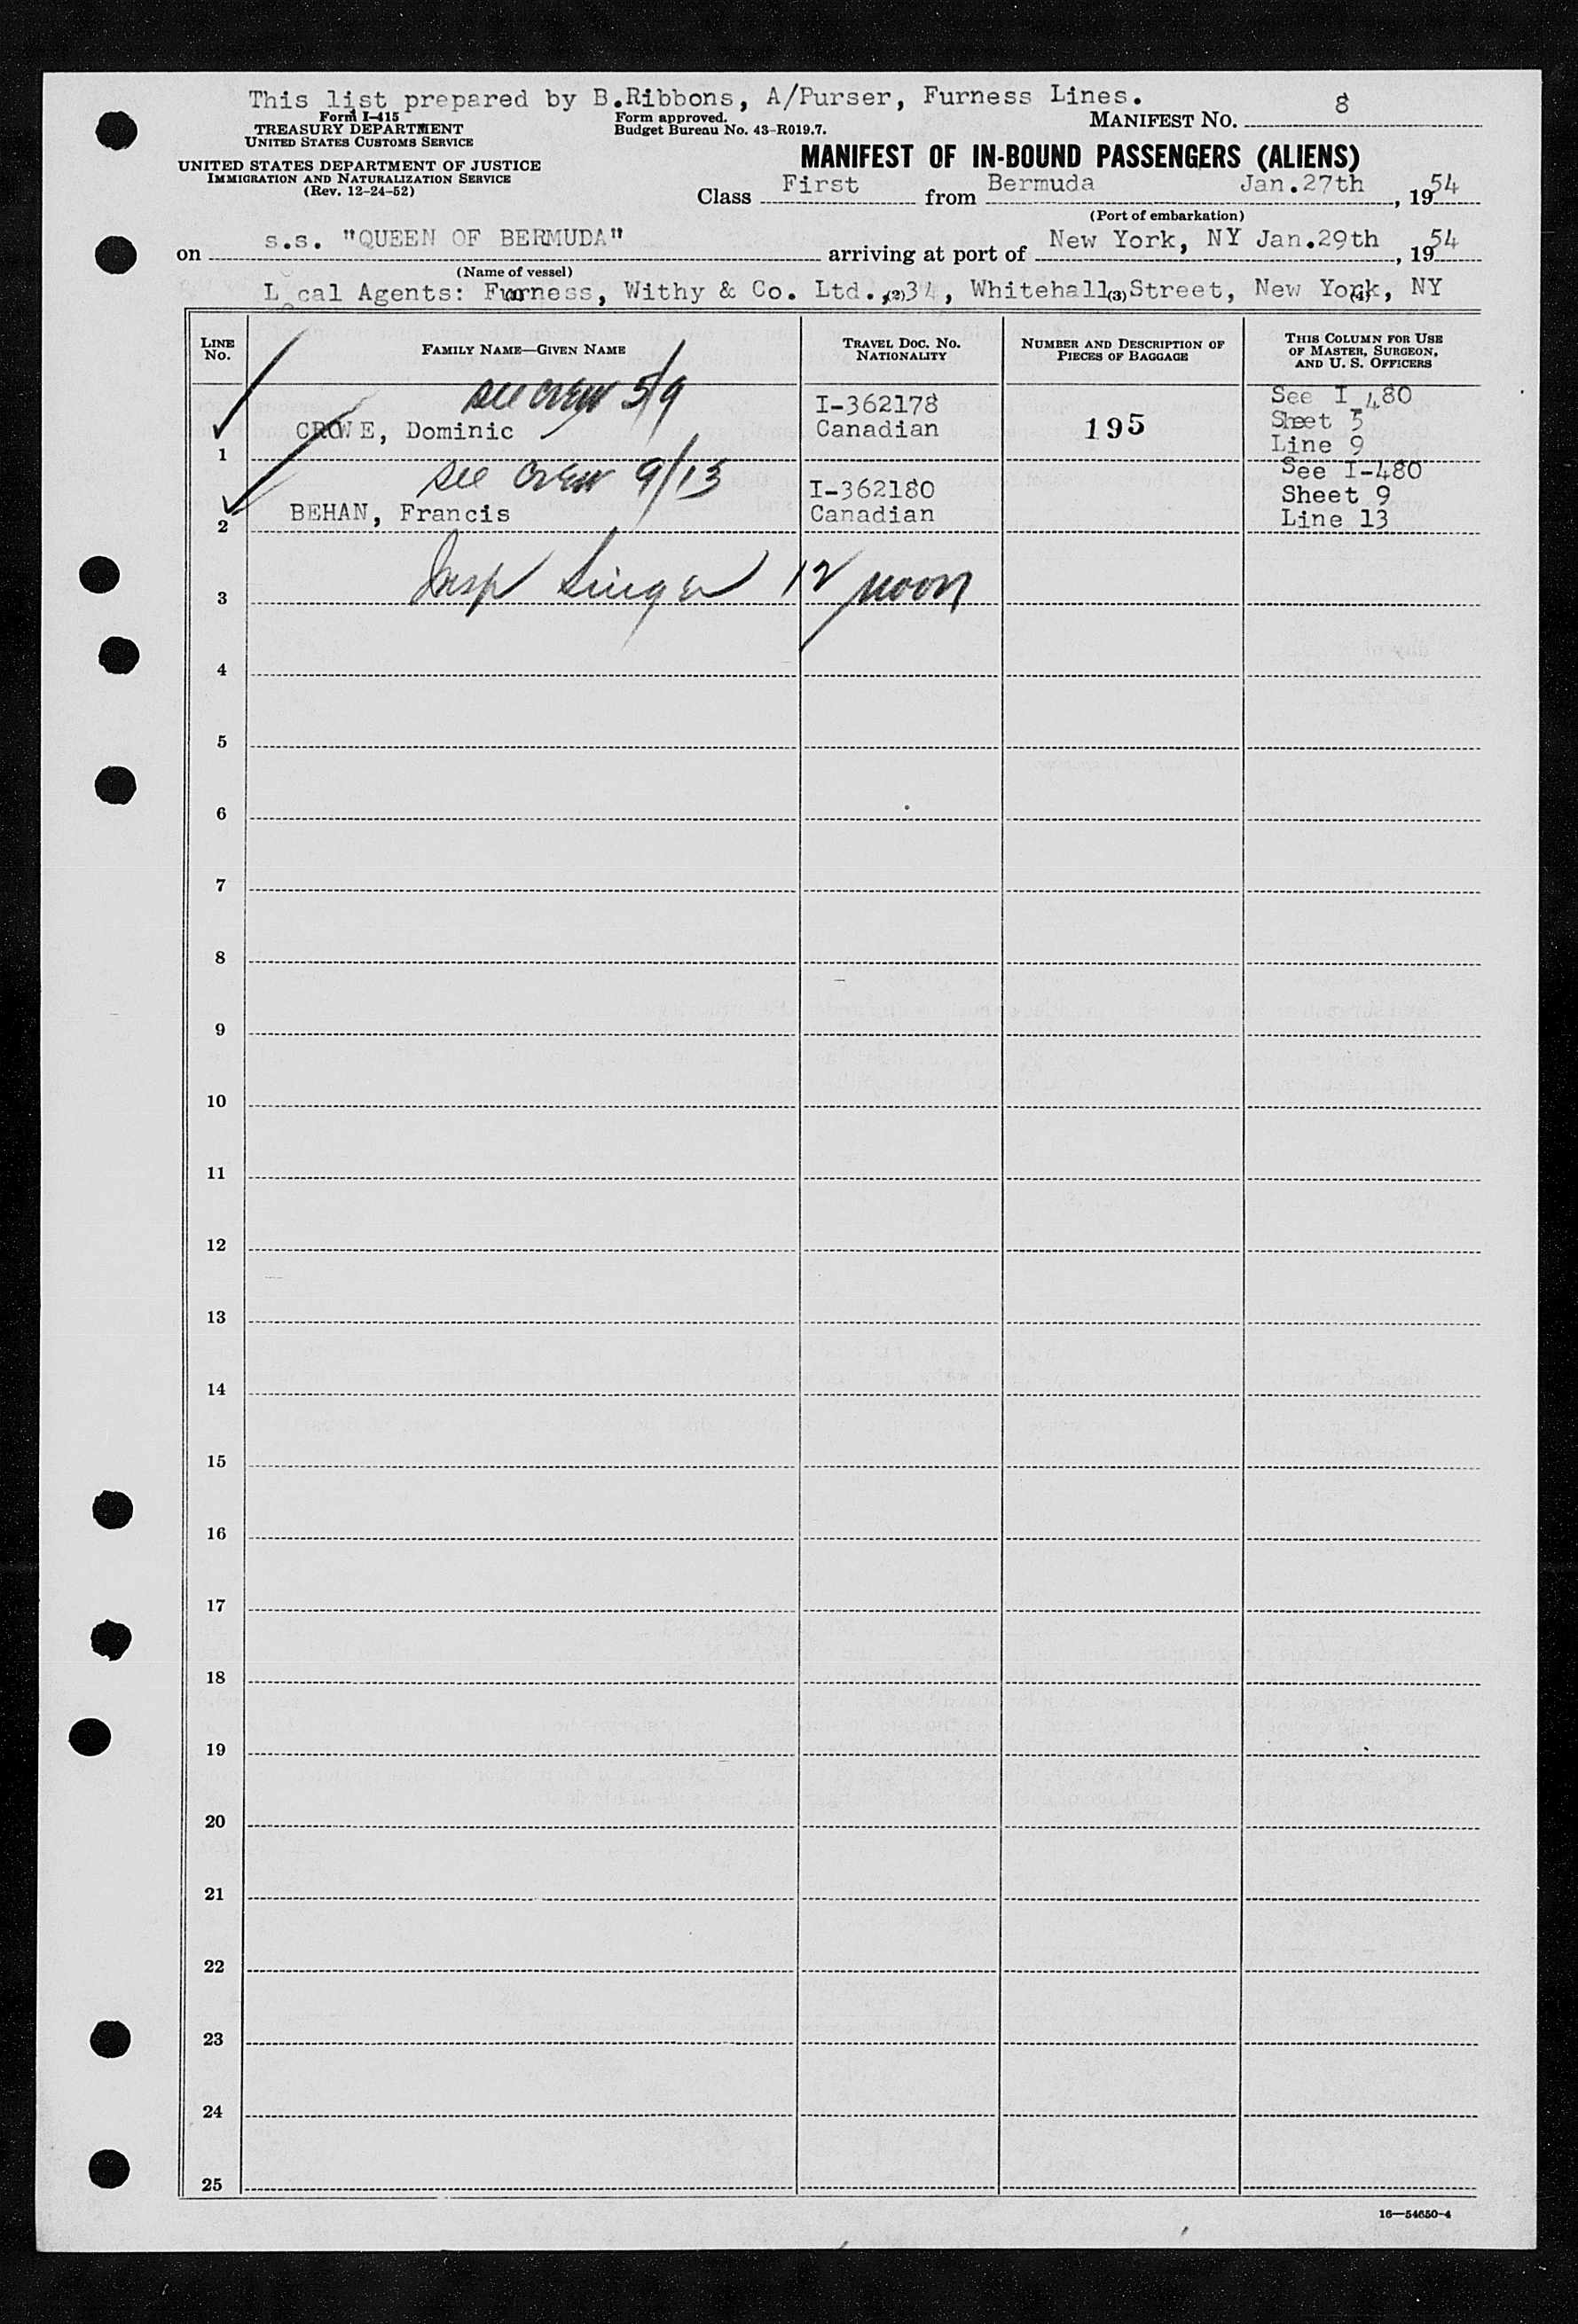 This list prepared by B.Ribbons, A/Purser, Furness Lines.
Form I-415
TREASURY DEPARTMENT
UNITED STATES CUSTOMS SERVICE
Form approved.
Budget Bureau No. 43-R019.7.
MANIFEST NO. 8
UNITED STATES DEPARTMENT OF JUSTICE
IMMIGRATION AND NATURALIZATION SERVICE
(Rev. 12-24-52)
MANIFEST OF IN-BOUND PASSENGERS (ALIENS)
Class First from Bermuda Jan.27th, 1954
(Port of embarkation)
on s.s. "QUEEN OF BERMUDA" arriving at port of New York, NY Jan.29th, 1954
(Name of vessel)
Local Agents: Furness, Withy & Co. Ltd., 34, Whitehall Street, New York, NY
(2) (3) (4)
LINE NO.
FAMILY NAME—GIVEN NAME
TRAVEL DOC. NO.
NATIONALITY
NUMBER AND DESCRIPTION OF
PIECES OF BAGGAGE
THIS COLUMN FOR USE
OF MASTER, SURGEON,
AND U. S. OFFICERS
see crew 5/9
1 CROWE, Dominic
I-362178
Canadian
195
See I 480
Sheet 5
Line 9
see crew 9/13
2 BEHAN, Francis
I-362180
Canadian
See I-480
Sheet 9
Line 13
3 Insp Singer 12 noon
4
5
6
7
8
9
10
11
12
13
14
15
16
17
18
19
20
21
22
23
24
25
16—54650-4